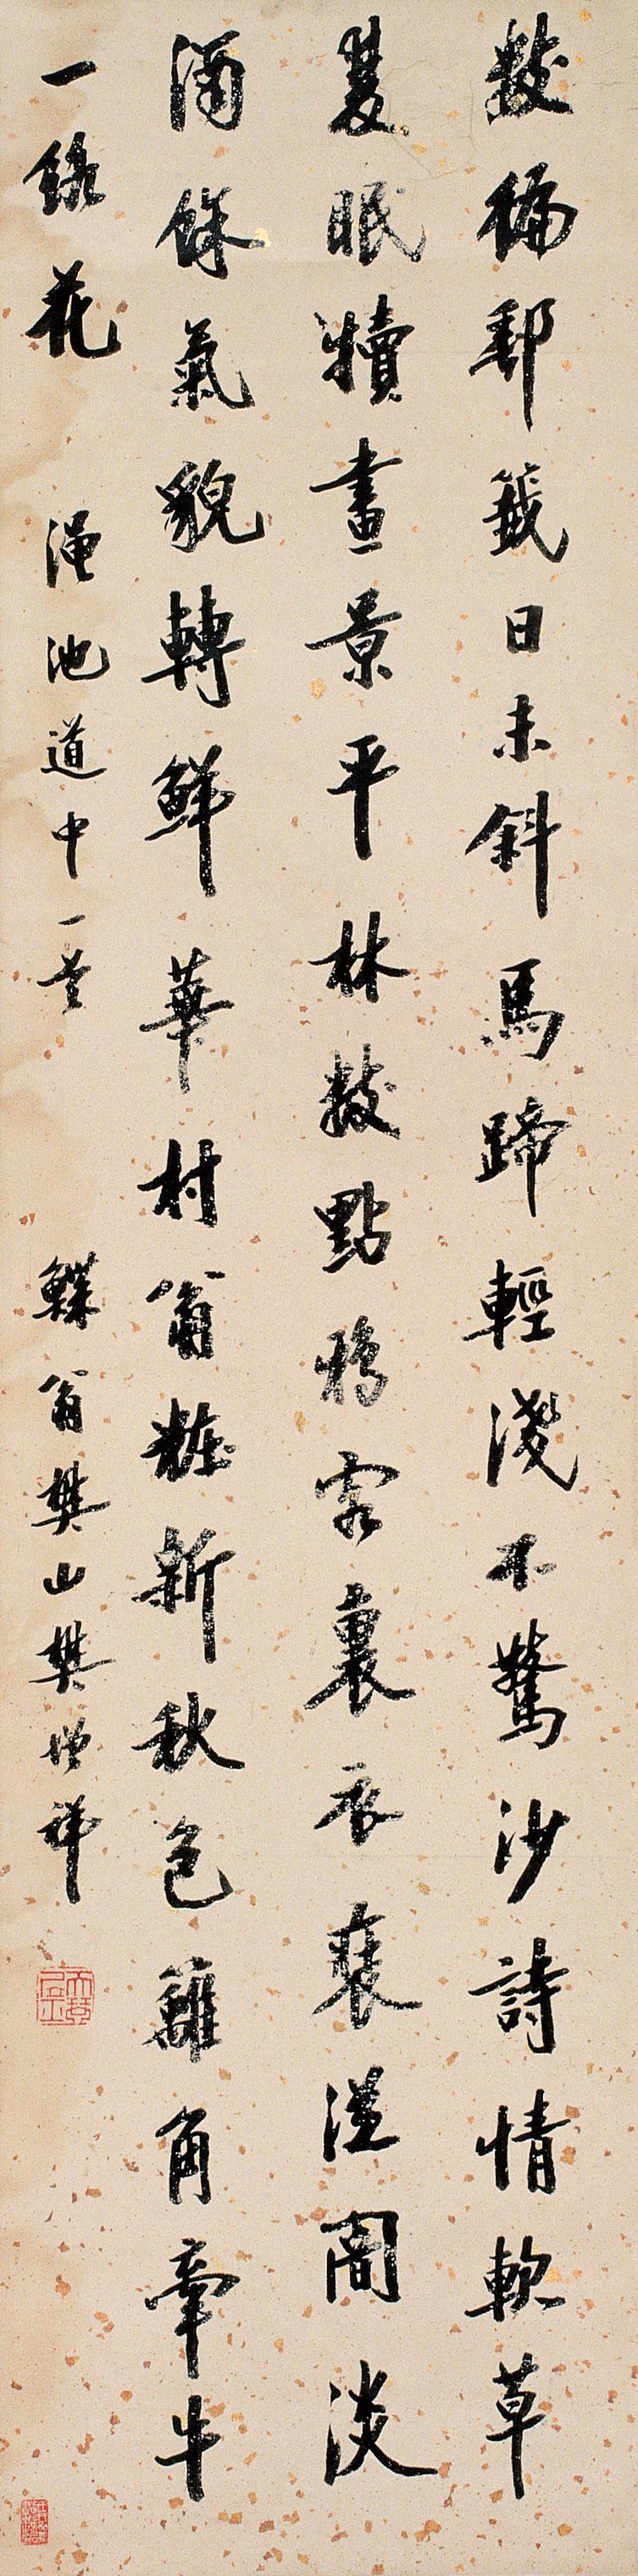 數徧郵籤日未斜馬蹄輕淺不驚沙詩情軟草
茸眠犢畫景平林數點鴉客裏衣裘從闇淡
酒餘氣貌轉鮮華村翁粧新秋色籬角牽牛
一線花 澠池道中一首 鰈翁樊山樊增祥